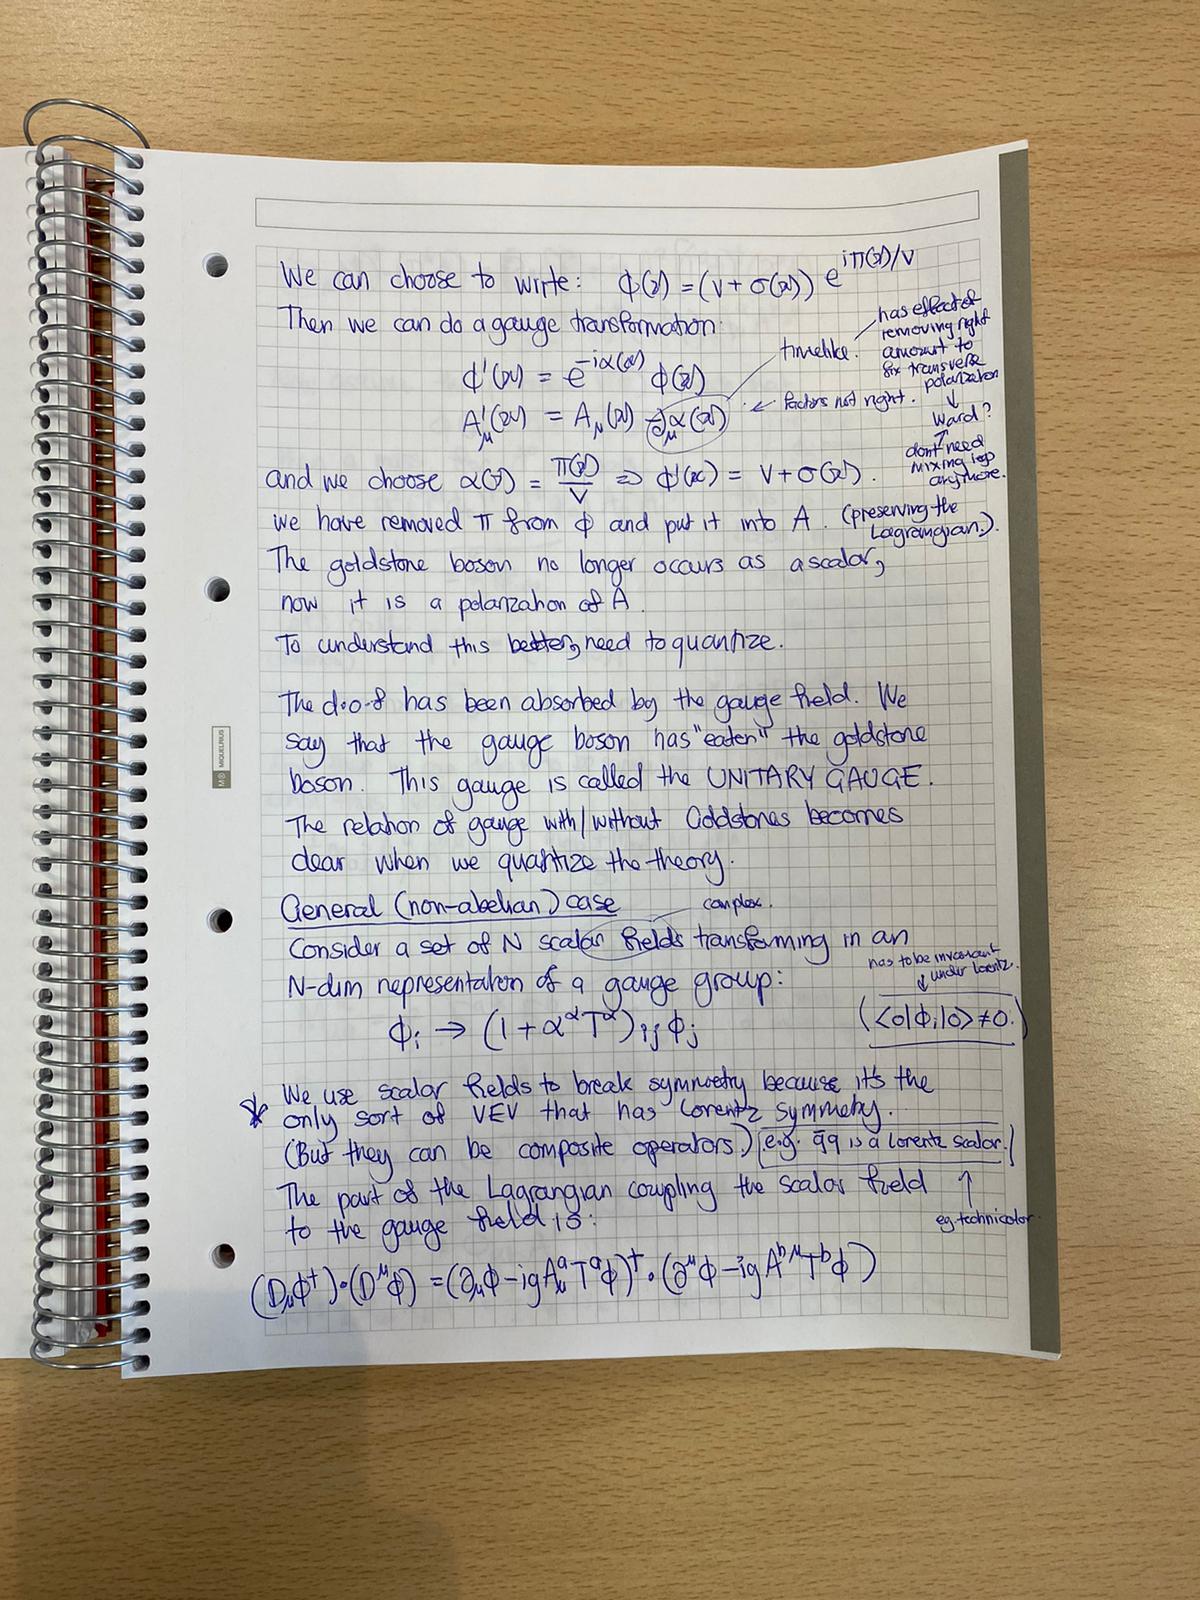 We can choose to write: ϕ(x) = (v + σ(x)) e^{iπ(x)/v}
Then we can do a gauge transformation:
ϕ'(x) = e^{-iα(x)} ϕ(x)
A'_μ(x) = A_μ(x) - ∂_μ α(x)
← factors not right.
timelike.
has effect of
removing right
amount to
fix transverse
polarization
↓
Ward?
↑
dont need
mixing
anymore.
and we choose α(x) = π(x)/v ⇒ ϕ'(x) = v + σ(x).
we have removed π from ϕ and put it into A. (preserving the
Lagrangian.).
The goldstone boson no longer occurs as a scalar,
now it is a polarization of A.
To understand this better, need to quantize.
The d.o.f has been absorbed by the gauge field. We
say that the gauge boson has "eaten" the goldstone
boson. This gauge is called the UNITARY GAUGE.
The relation of gauge with/without Goldstones becomes
clear when we quantize the theory.
General (non-abelian) case
complex.
Consider a set of N scalar fields transforming in an
N-dim representation of a gauge group:
has to be invariant
↓ under Lorentz.
ϕ_i → (1 + α^α T^α)_{ij} ϕ_j
(<0|ϕ_i|0> ≠ 0.)
* We use scalar fields to break symmetry because it's the
only sort of VEV that has Lorentz symmetry.
(But they can be composite operators.) [e.g. q̄q is a Lorentz scalar.]
↑
eg. technicolor.
The part of the Lagrangian coupling the scalar field
to the gauge field is:
(D_μϕ^†)·(D^μϕ) = (∂_μϕ - igA^a_μ T^aϕ)^† · (∂^μϕ - igA^{bμ}T^bϕ)
MIQUELRIUS